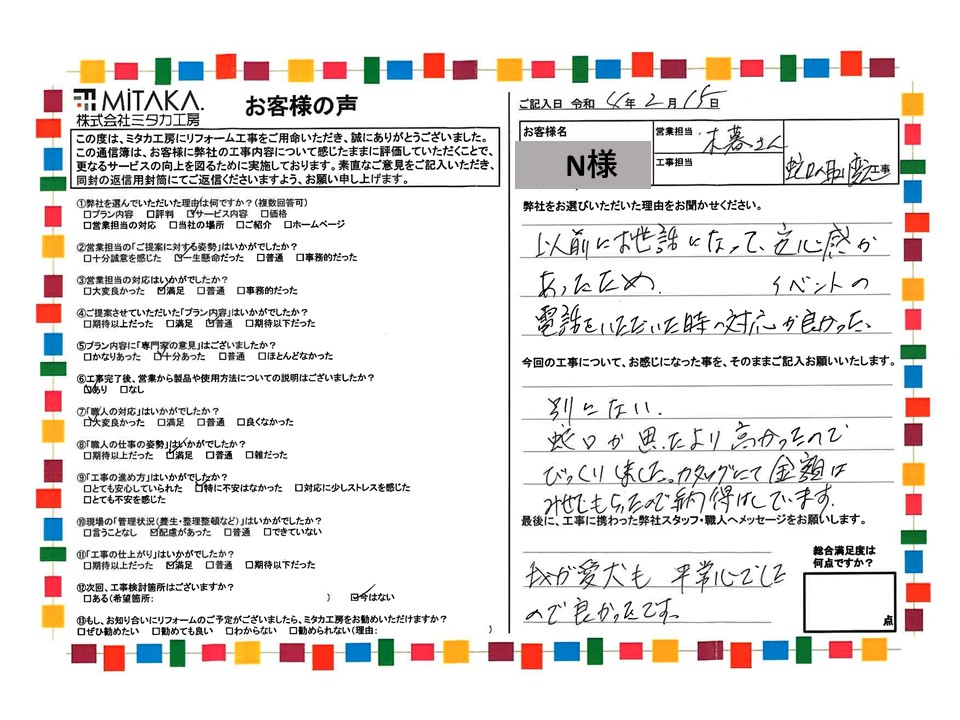 MiTAKA.
株式会社ミタカ工房
お客様の声
この度は、ミタカ工房にリフォーム工事をご用命いただき、誠にありがとうございました。
この通信簿は、お客様に弊社の工事内容について感じたままに評価していただくことで、
更なるサービスの向上を図るために実施しております。素直なご意見をご記入いただき、
同封の返信用封筒にてご返信くださいますよう、お願い申し上げます。
①弊社を選んでいただいた理由は何ですか?(複数回答可)
□プラン内容 □評判 ☑サービス内容 □価格
□営業担当の対応 □当社の場所 □ご紹介 □ホームページ
②営業担当の「ご提案に対する姿勢」はいかがでしたか?
□十分誠意を感じた ☑一生懸命だった □普通 □事務的だった
③営業担当の対応はいかがでしたか?
□大変良かった ☑満足 □普通 □事務的だった
④ご提案させていただいた「プラン内容」はいかがでしたか?
□期待以上だった □満足 ☑普通 □期待以下だった
⑤プラン内容に「専門家の意見」はございましたか?
□かなりあった ☑十分あった □普通 □ほとんどなかった
⑥工事完了後、営業から製品や使用方法についての説明はございましたか?
☑あり □なし
⑦「職人の対応」はいかがでしたか?
☑大変良かった □満足 □普通 □良くなかった
⑧「職人の仕事の姿勢」はいかがでしたか?
□期待以上だった ☑満足 □普通 □雑だった
⑨「工事の進め方」はいかがでしたか?
□とても安心していられた ☑特に不安はなかった □対応に少しストレスを感じた
□とても不安を感じた
⑩現場の「管理状況(養生・整理整頓など)」はいかがでしたか?
□言うことなし ☑配慮があった □普通 □できていない
⑪「工事の仕上がり」はいかがでしたか?
□期待以上だった ☑満足 □普通 □期待以下だった
⑫次回、工事検討箇所はございますか?
□ある(希望箇所: ) ☑今はない
⑬もし、お知り合いにリフォームのご予定がございましたら、ミタカ工房をお勧めいただけますか?
□ぜひ勧めたい □勧めても良い □わからない □勧められない(理由: )
ご記入日 令和 4年 2月 15日
お客様名
N様
営業担当
木暮さん
工事担当
蛇口取替工事
弊社をお選びいただいた理由をお聞かせください。
以前にお世話になって、安心感が
あったため. イベントの
電話をいただいた時の対応が良かった、
今回の工事について、お感じになった事を、そのままご記入お願いいたします。
別にない.
蛇口が思たより高かったので
びっくりしました。カタログにて金額は
みせてもらったので納得はしています.
最後に、工事に携わった弊社スタッフ・職人へメッセージをお願いします。
我が愛犬も 平常心でした
ので良かったです。
総合満足度は
何点ですか?
点